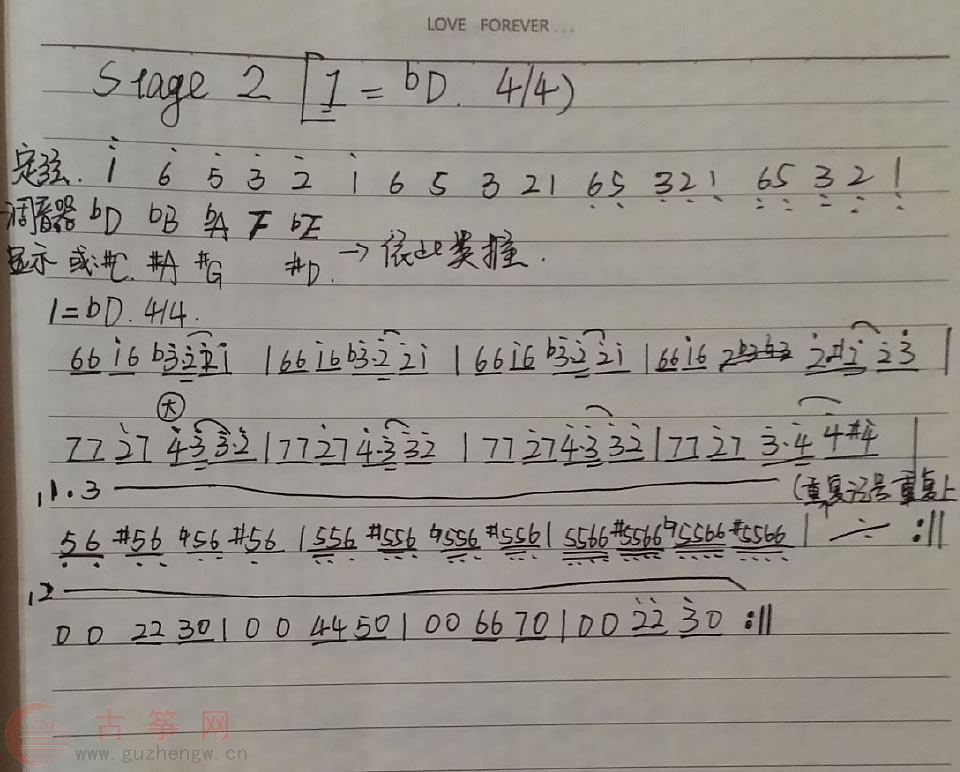 LOVE FOREVER...
Stage 2 [1 = bD. 4/4)
定弦. i 6 5 3 2 1 6 5 3 2 1 6 5 3 2 1 6 5 3 2 1
调音器 bD bB bA F bE
显示 或:#C. #A #G #D. → 依此类推.
1=bD. 4/4.
66 i6 b3·2 2i | 66 i6 b3·2 2i | 66 i6 b3·2 2i | 66 i6 2·#1 2 23 |
大
77 27 4·3 3·2 | 77 27 4·3 32 | 77 27 4·3 32 | 77 27 3·4 4#4 |
1.3 (重复记号重复上
56 #56 ♮56 #56 | 556 #556 ♮556 #556 | 5566 #5566 ♮5566 #5566 | ·/· :||
2
0 0 22 30 | 0 0 44 50 | 0 0 66 70 | 0 0 22 30 :||
古筝网
www.guzhengw.cn